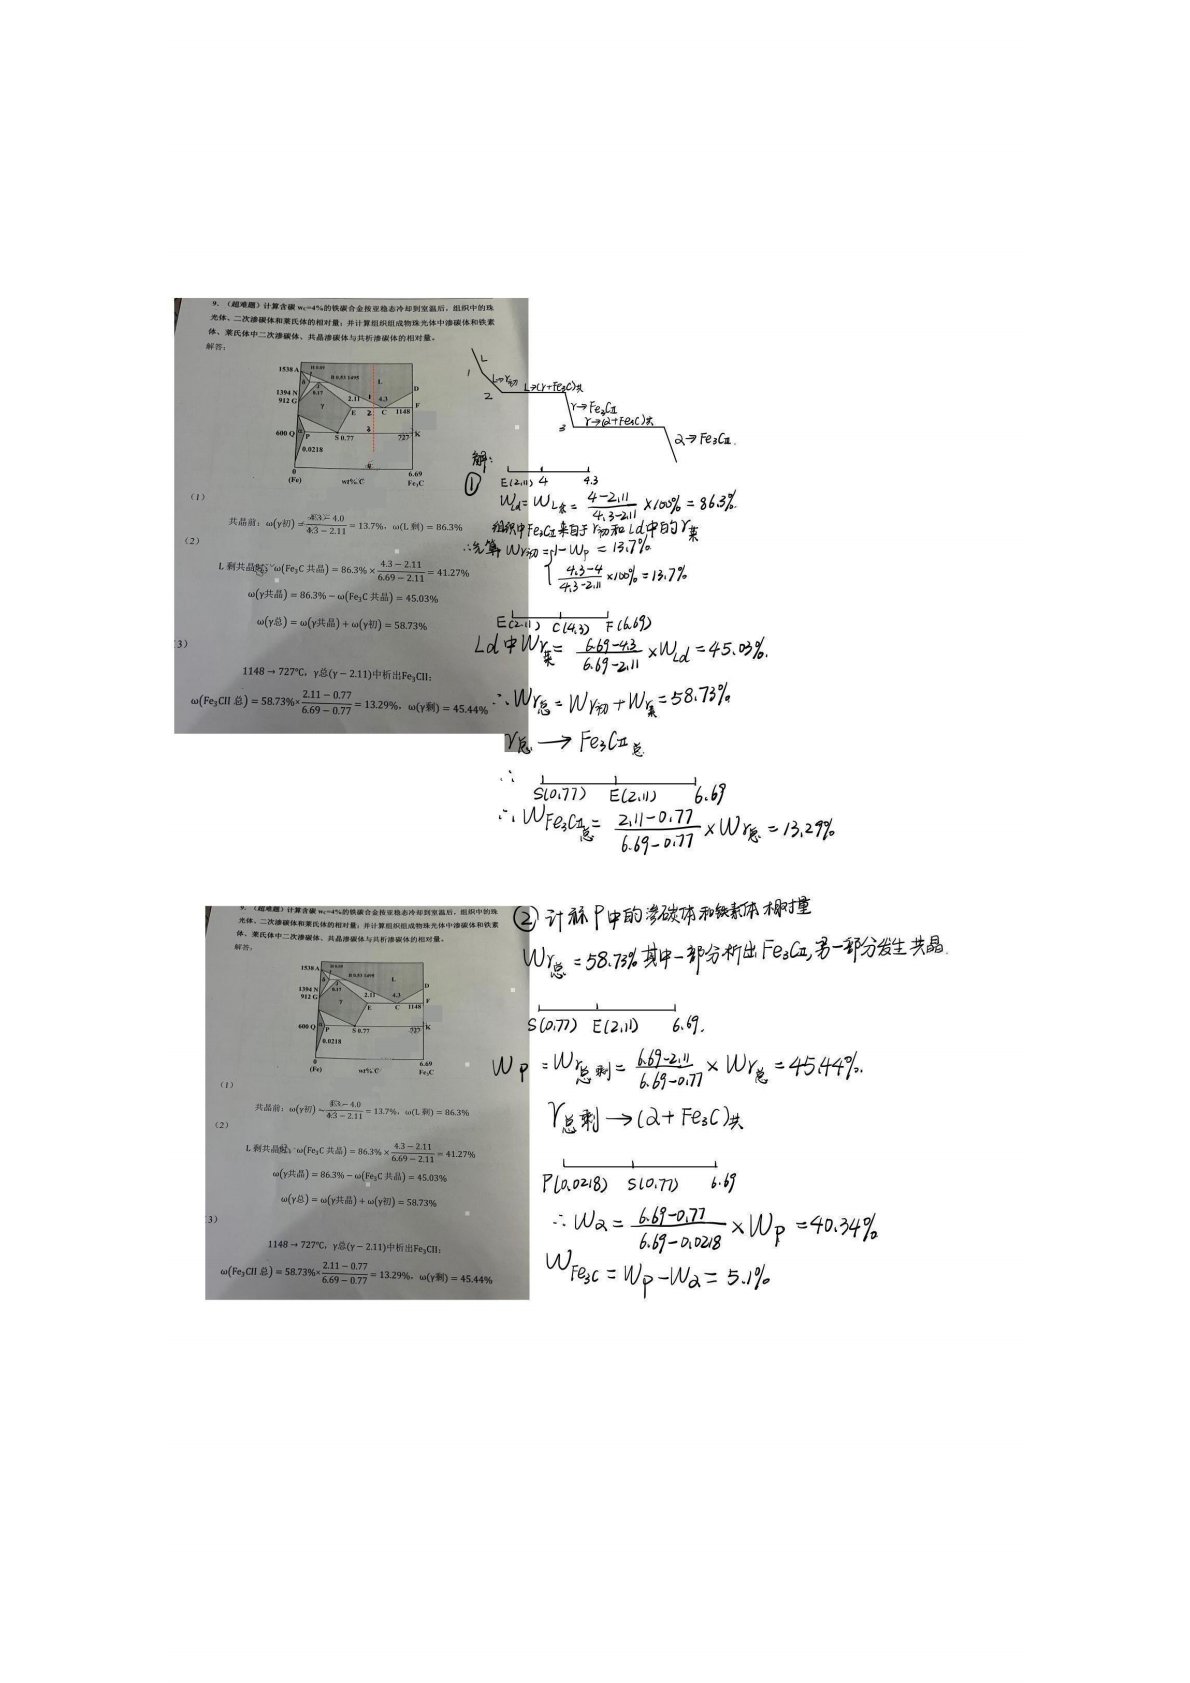 9.（超难题）计算含碳 wc=4%的铁碳合金按亚稳态冷却到室温后，组织中的珠
光体、二次渗碳体和莱氏体的相对量；并计算组织组成物珠光体中渗碳体和铁素
体、莱氏体中二次渗碳体、共晶渗碳体与共析渗碳体的相对量。
解答：
1538 A
H 0.09
B 0.53 1495
L
D
1394 N
912 G
δ
J
0.17
γ
2.11
1
4.3
E
2
C
1148
F
600 Q
α
P
S 0.77
3
727
K
0.0218
0
(Fe)
wt% C
6.69
Fe₃C
(1)
共晶前：ω(γ初) = (4.3 − 4.0)/(4.3 − 2.11) = 13.7%，ω(L 剩) = 86.3%
(2)
L 剩共晶时：ω(Fe₃C 共晶) = 86.3% × (4.3 − 2.11)/(6.69 − 2.11) = 41.27%
ω(γ共晶) = 86.3% − ω(Fe₃C 共晶) = 45.03%
ω(γ总) = ω(γ共晶) + ω(γ初) = 58.73%
3)
1148 → 727℃，γ总(γ − 2.11)中析出Fe₃CII：
ω(Fe₃CII 总) = 58.73%× (2.11 − 0.77)/(6.69 − 0.77) = 13.29%，ω(γ剩) = 45.44%
L
1
L→γ初
L→(γ+Fe₃C)共
2
γ→Fe₃CⅡ
γ→(α+Fe₃C)共
3
α→Fe₃CⅢ.
解：
① E(2.11) 4 4.3
WLd = WL余 = (4-2.11)/(4.3-2.11) ×100% = 86.3%.
组织中Fe₃CⅡ来自于γ初和Ld中的γ莱
∴先算 Wγ初 = 1-Wp = 13.7%
(4.3-4)/(4.3-2.11) ×100% = 13.7%
E(2.11) C(4.3) F(6.69)
Ld中Wγ莱 = (6.69-4.3)/(6.69-2.11) ×WLd = 45.03%.
∴Wγ总 = Wγ初 + Wγ莱 = 58.73%
γ总 → Fe₃CⅡ总
∴
S(0.77) E(2.11) 6.69
∴ WFe₃CⅡ总 = (2.11-0.77)/(6.69-0.77) ×Wγ总 = 13.29%
9.（超难题）计算含碳 wc=4%的铁碳合金按亚稳态冷却到室温后，组织中的珠
光体、二次渗碳体和莱氏体的相对量；并计算组织组成物珠光体中渗碳体和铁素
体、莱氏体中二次渗碳体、共晶渗碳体与共析渗碳体的相对量。
解答：
1538 A
H 0.09
B 0.53 1495
L
D
1394 N
912 G
J
0.17
γ
2.11
4.3
E
C
1148
F
600 Q
α
P
S 0.77
727
K
0.0218
0
(Fe)
wt% C
6.69
Fe₃C
(1)
共晶前：ω(γ初) = (4.3 − 4.0)/(4.3 − 2.11) = 13.7%，ω(L 剩) = 86.3%
(2)
L 剩共晶时：ω(Fe₃C 共晶) = 86.3% × (4.3 − 2.11)/(6.69 − 2.11) = 41.27%
ω(γ共晶) = 86.3% − ω(Fe₃C 共晶) = 45.03%
ω(γ总) = ω(γ共晶) + ω(γ初) = 58.73%
3)
1148 → 727℃，γ总(γ − 2.11)中析出Fe₃CII：
ω(Fe₃CII 总) = 58.73%× (2.11 − 0.77)/(6.69 − 0.77) = 13.29%，ω(γ剩) = 45.44%
② 计算P中的渗碳体和铁素体相对量
Wγ总 = 58.73% 其中一部分析出Fe₃CⅡ,另一部分发生共晶.
S(0.77) E(2.11) 6.69.
Wp = Wγ总剩 = (6.69-2.11)/(6.69-0.77) × Wγ总 = 45.44%.
γ总剩 → (α+Fe₃C)共
P(0.0218) S(0.77) 6.69
∴ Wα = (6.69-0.77)/(6.69-0.0218) ×Wp = 40.34%
WFe₃C = Wp-Wα = 5.1%